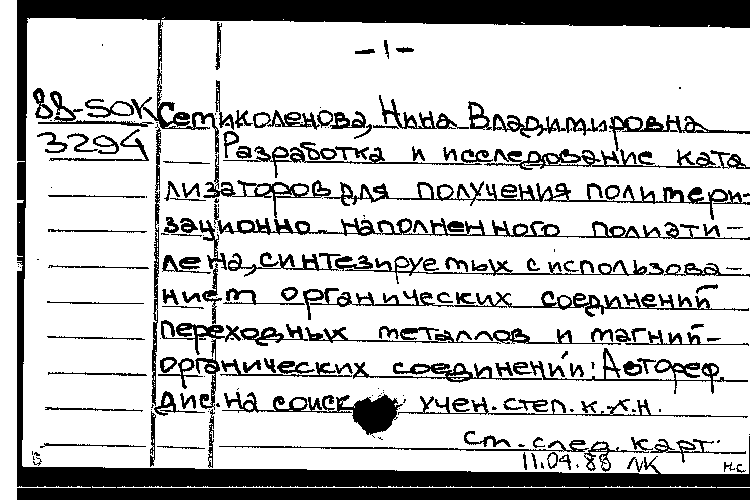 -1-
88-50К Семиколенова, Нина Владимировна
3294 Разработка и исследование ката
лизаторов для получения полимери-
зационно-наполненного полиэти-
лена, синтезируемых с использова-
нием органических соединений
переходных металлов и магний-
органических соединений: Автореф.
дис. на соиск. учен. степ. к.х.н.
см. след. карт.
11.04.88 ЛК нс